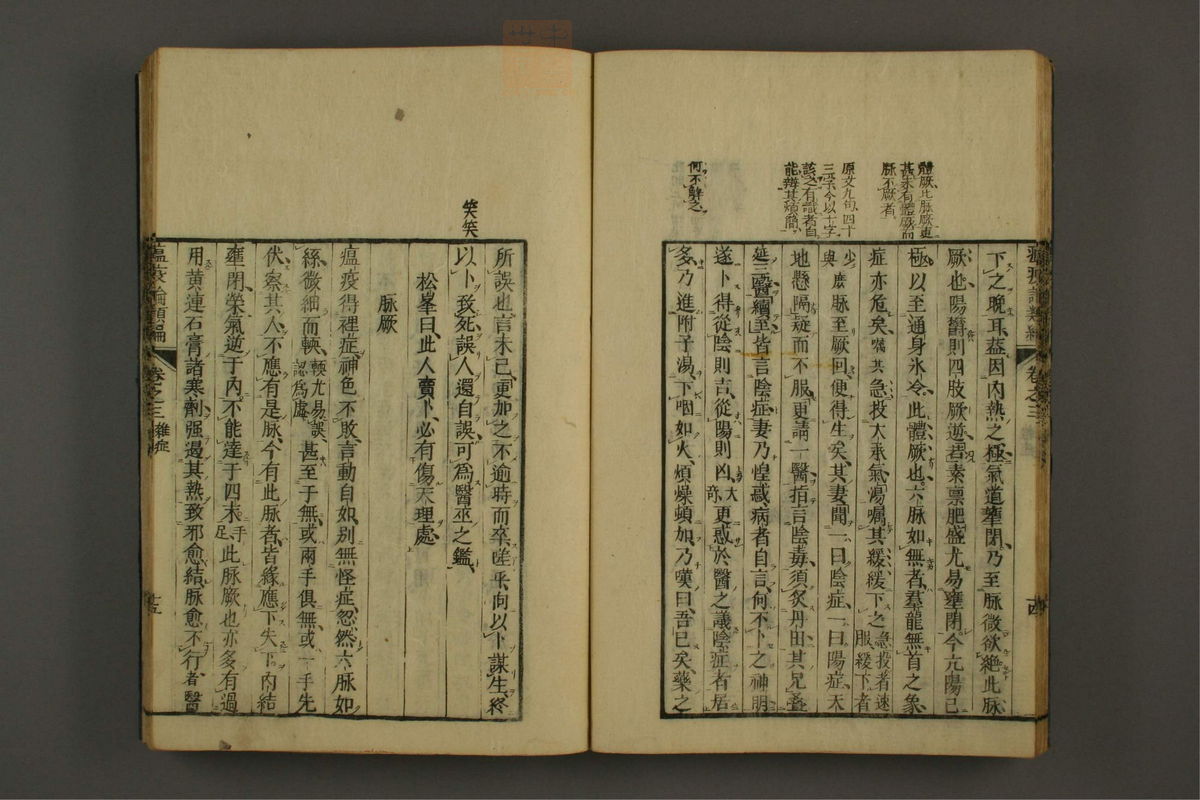 體厥此脉厥更
甚未有體厥而
脉不厥者
原文九句四十
三字今以十字
該之有識者自
能辨其煩簡
何不辭之
瘟疫論類編
卷之三
十四
下之晚耳蓋因內熱之極氣道壅閉乃至脉微欲絕此脉
厥也陽鬱則四肢厥逆若素禀肥盛尤易壅閉今亢陽已
極以至通身氷冷此體厥也六脉如無者羣龍無首之象
症亦危矣囑其急投大承氣湯囑其緩緩下之急投者速服緩下者
少與麽脉至厥回便得生矣其妻聞一曰陰症一曰陽症天
地懸隔疑而不服更請一醫指言陰毒須灸丹田其兄叠
延三醫續至皆言陰症妻乃惶惑病者自言何不卜之神明
遂卜得從陰則吉從陽則凶大奇更惑於醫之議陰症者居
多乃進附子湯下咽如火煩燥頓加乃嘆曰吾已矣藥之
笑笑
所誤也言未已更加之不逾時而卒嗟乎向以卜謀生終
以卜致死誤人還自誤可爲醫巫之鑑
松峯曰此人賣卜必有傷天理處
脉厥
瘟疫得裡症神色不敗言動自如别無怪症忽然六脉如
絲微細而軟軟尤易誤認爲虛甚至于無或兩手俱無或一手先
伏察其人不應有是脉今有此脉者皆緣應下失下內結
壅閉榮氣逆于內不能達于四末手足此脉厥也亦多有過
用黄連石膏諸寒劑强遏其熱致邪愈結脉愈不行者醫
瘟疫論類編
卷之三
雜症
十五